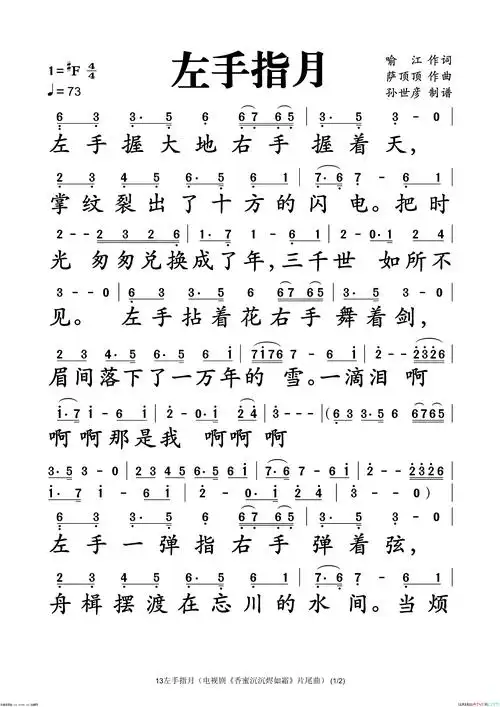 左手指月
喻 江 作词
1=#F 4/4
萨顶顶 作曲
♩=73
孙世彦 制谱
6 3 3· 5 6 67 65 | 3· 5 3 - 0 |
左手握大地右手握着天，
2 3 4· 5 6· 5 6 1 | 7· 6 7 - 6 1 |
掌纹裂出了十方的闪电。把时
2 - - 2 3 2 6 | 1· 7 1 - 6 1 | 2 - 0· 1 2 4 |
光 匆匆兑换成了年，三千世 如所不
3 - - 0 | 6 3 3· 5 6 67 65 | 3· 5 3 - 0 |
见。 左手拈着花右手舞着剑，
2 3 4· 5 4· 5 6 i | 7i76 7 - 6 i | 2 - - 2326 |
眉间落下了一万年的 雪。一滴泪 啊
i· 7 i - 6 i | 2 - 0· i 2 4 | 3 - - - | (6 3 3· 5 6 6765 |
啊啊那是我 啊啊啊
3· 5 3 - 0 | 2 3 4 5 6· 5 6 i | 7· 6 7 - 6 i | 2 - - 2326 |
i· 7 i - 6 i | 2 - 0· i 2 4 | 3 - - 0 )
6 3 3· 5 6 67 65 | 3· 5 3 - 0 |
左手一弹指右手弹着弦，
2 3 4· 5 6· 5 6 1 | 7· 6 7 - 6 1 |
舟楫摆渡在忘川的水间。当烦
13左手指月（电视剧《香蜜沉沉烬如霜》片尾曲）(1/2)